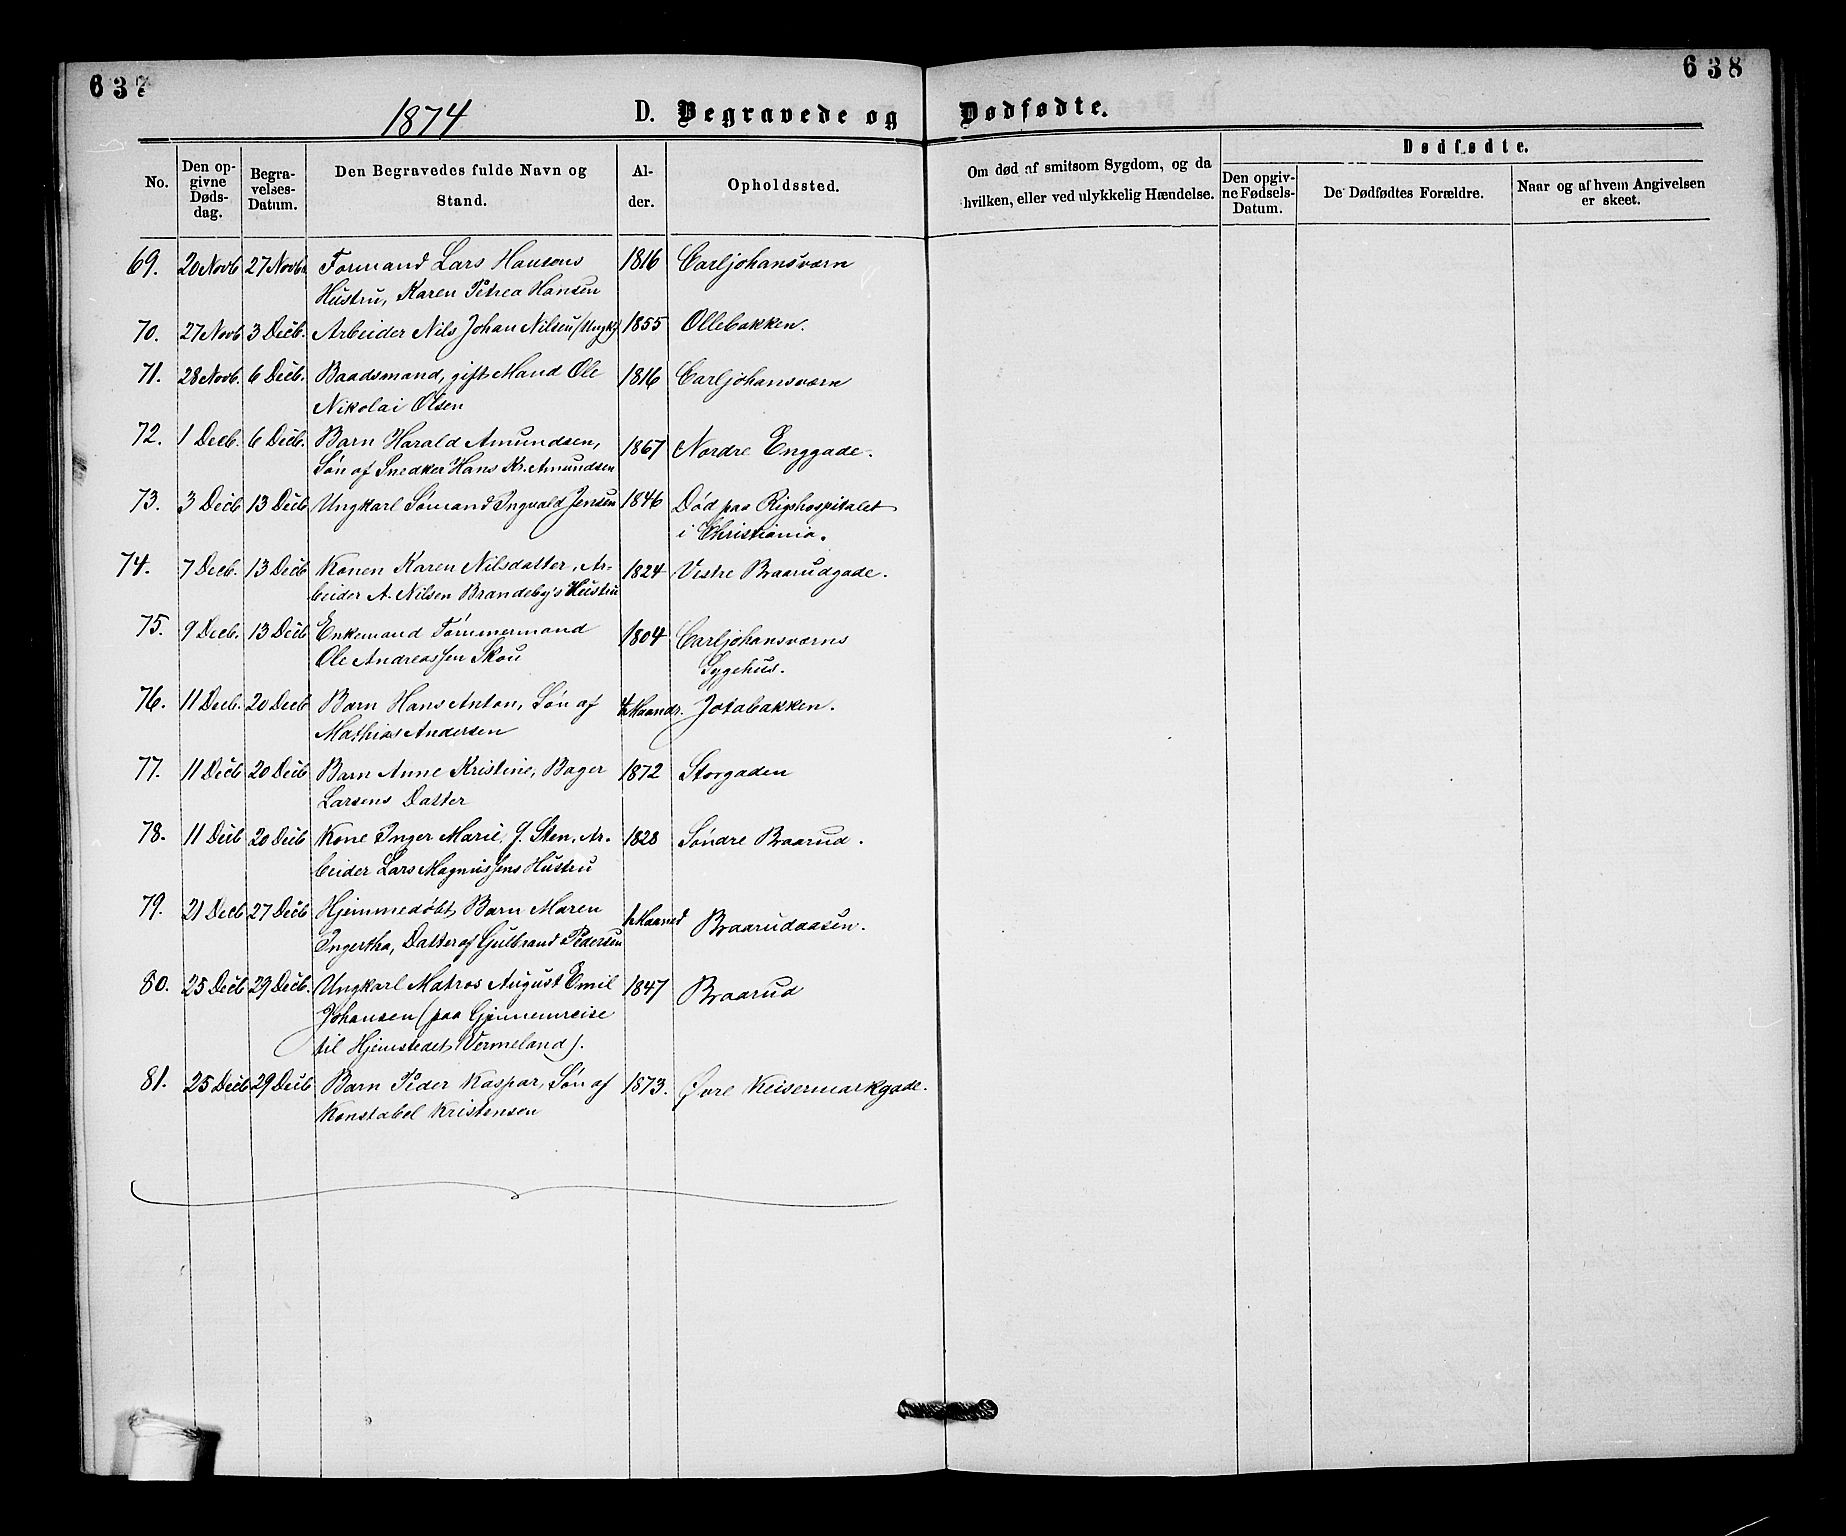 637
638
1874 D. Begravede og Dødfødte.
No. Den opgivne Dødsdag. Begravelses-Datum. Den Begravedes fulde Navn og Stand. Alder. Opholdssted. Om død af smitsom Sygdom, og da hvilken, eller ved ulykkelig Hændelse. Dødfødte. Den opgivne Fødsels-Datum. De Dødfødtes Forældre. Naar og af hvem Angivelsen er skeet.
69. 20 Novb 27 Novb. Formand Lars Hansens 1816 Carljohansværn
Hustru, Karen Petrea Hansen
70. 27 Novb 3 Decb. Arbeider Nils Johan Nilsen (Ungk) 1855 Ollebakken.
71. 28 Novb. 6 Decb. Baadsmand, gift Mand Ole 1816 Carljohansværn
Nikolai Olsen
72. 1 Decb. 6 Decb. Barn Harald Amundsen, 1867 Nordre Enggade.
Søn af Snedker Hans Kr. Amundsen
73. 3 Decb 13 Decb Ungkarl Sømand Ingvald Jensen 1846 Død paa Rigshospitalet
i Christiania.
74. 7 Decb. 13 Decb Konen Karen Nilsdatter, Ar- 1824 Vestre Braarudgade.
beider A. Nilsen Brandeby's Hustru
75. 9 Decb. 13 Decb Enkemand Tømmermand 1804 Carljohansværns
Ole Andreassen Skou Sygehus.
76. 11 Decb. 20 Decb Barn Hans Anton, Søn af Maandr. Jotabakken.
Mathias Andersen
77. 11 Decb 20 Decb Barn Anne Kristine, Bager 1872 Storgaden
Larsens Datter
78. 11 Decb 20 Decb Kone Inger Marie, J. Sten, Ar- 1828 Søndre Braarud.
beider Lars Magnussens Hustru
79. 21 Decb 27 Decb Hjemmedøbt Barn Maren Maaned Braarudaasen.
Ingertha, Datter af Gulbrand Pedersen
80. 25 Decb 29 Decb. Ungkarl Matros August Emil 1847 Braarud
Johansen (paa Gjennemreise
til Hjemstedet Vermeland).
81. 25 Decb 29 Decb Barn Peder Kaspar, Søn af 1873. Øvre Keisermarkgade.
Konstabel Kristensen